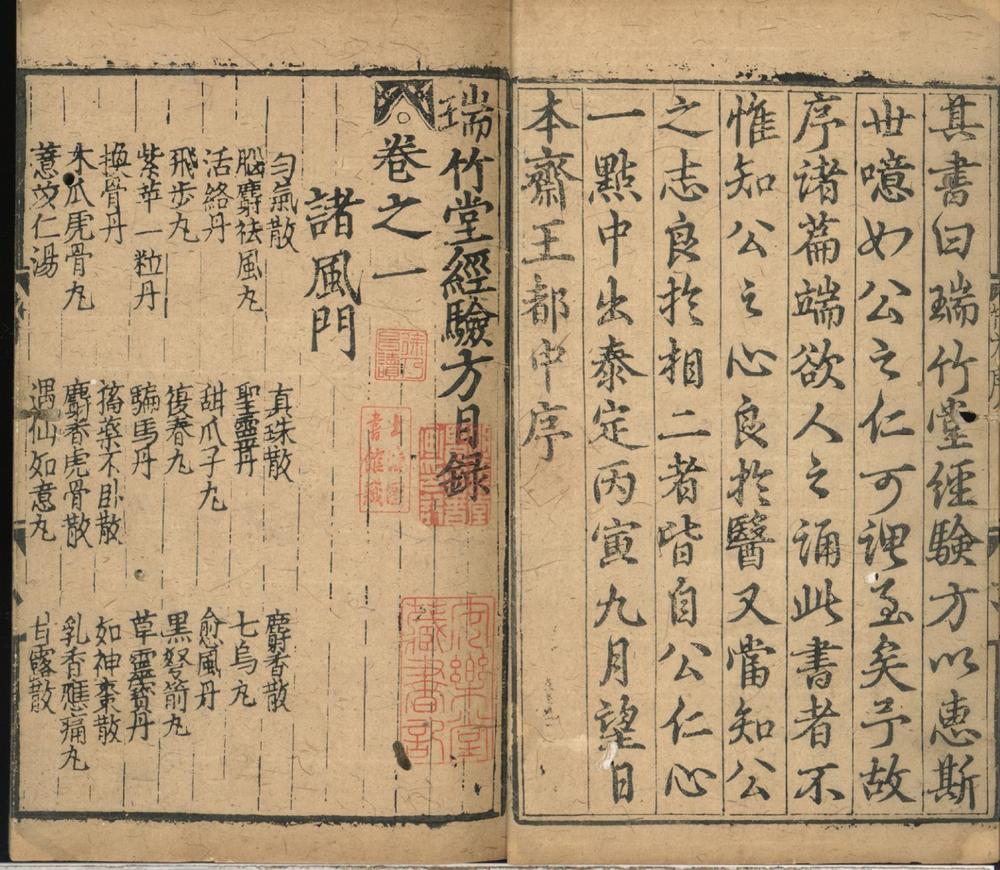 其書曰瑞竹堂經驗方以惠斯
世噫如公之仁可謂至矣予故
序諸篇端欲人之誦此書者不
惟知公之心良於醫又當知公
之志良於相二者皆自公仁心
一點中出泰定丙寅九月望日
本齋王都中序
瑞竹堂經驗方目録
卷之一
諸風門
勻氣散 真珠散 麝香散
腦麝祛風丸 聖靈丹 七烏丸
活絡丹 甜瓜子丸 愈風丹
飛步丸 復春丸 黑弩箭丸
紫萍一粒丹 騸馬丹 草靈寶丹
換骨丹 搐藥不卧散 如神棗散
木瓜虎骨丸 麝香虎骨散 乳香應痛丸
薏苡仁湯 遇仙如意丸 甘露散